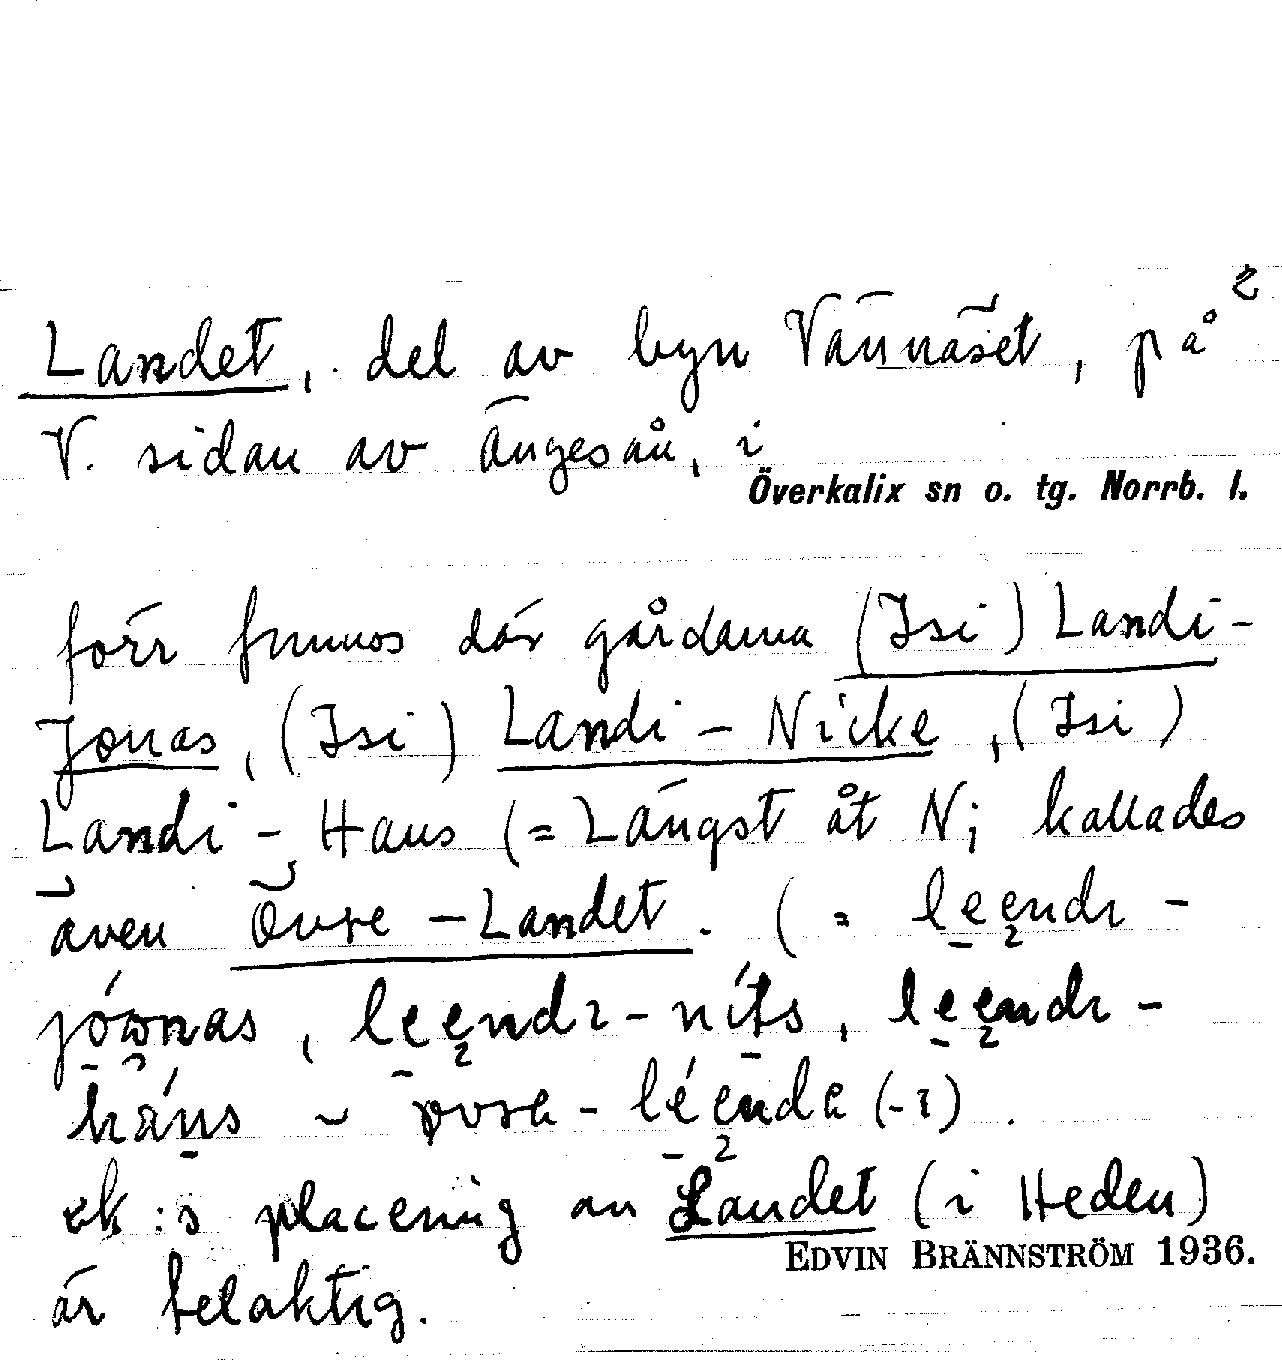 2
Landet, del av byn Vännäset, på
V. sidan av Ängesån, i
Överkalix sn o. tg. Norrb. l.
förr funnos där gårdarna (Isi) Landi-
Jonas, (Isi) Landi-Nicke, (Isi)
Landi-Hans (= Längst åt N; kallades
även Övre-Landet. (=
ek:s placering av Landet (i Heden)
EDVIN BRÄNNSTRÖM 1936.
är felaktig.